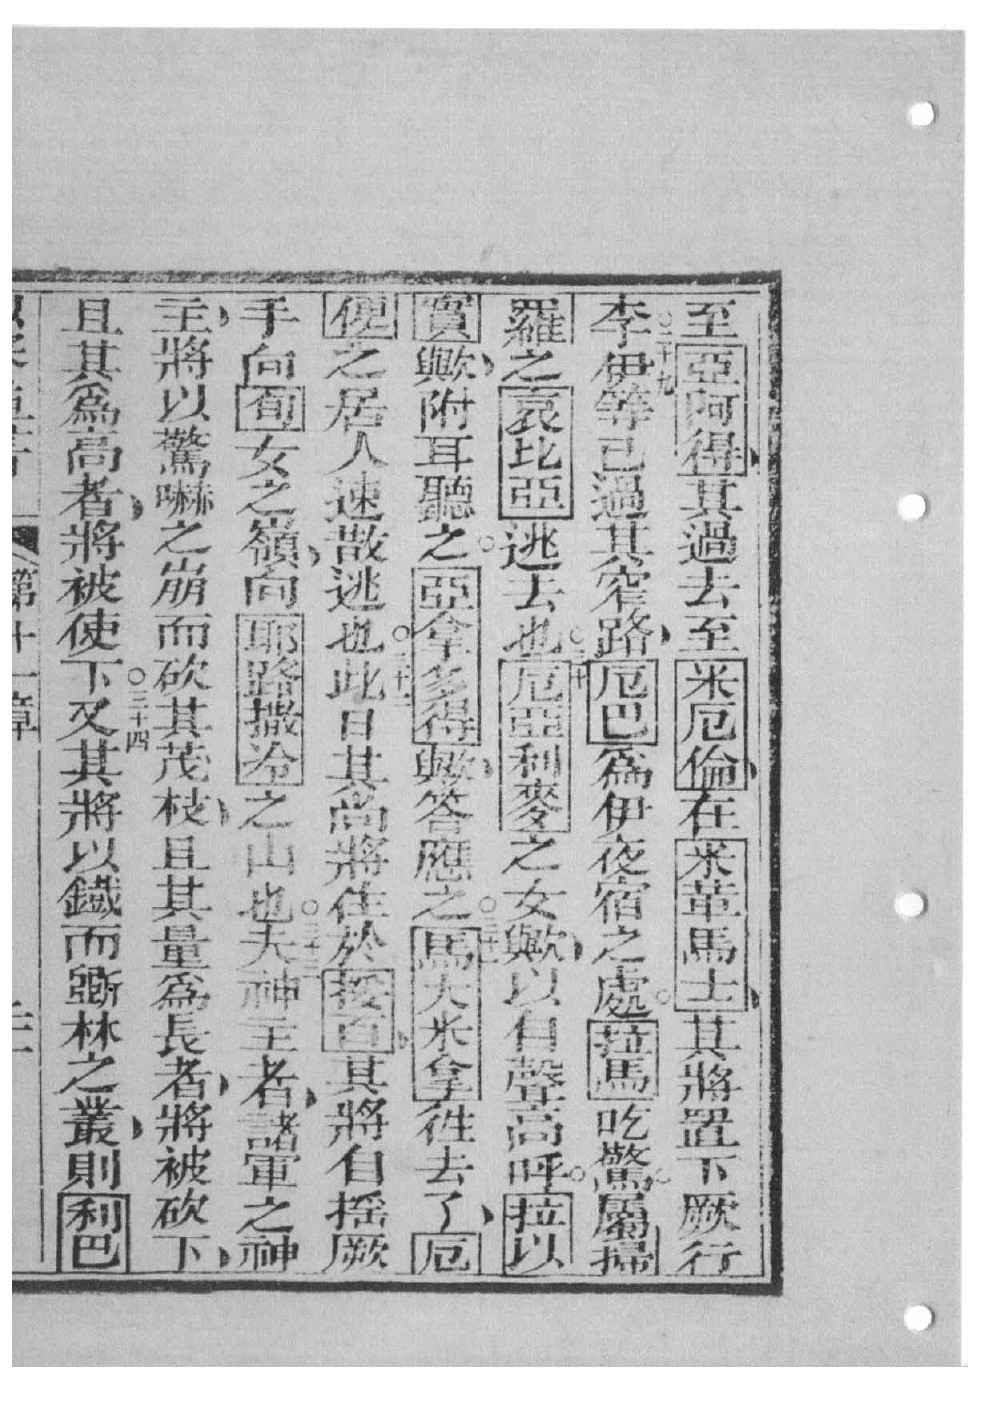 至亞阿得其過去至米厄倫在米革馬士其將置下厥行
李○二十九伊等已過其窄路厄巴爲伊夜宿之處○拉馬吃驚○屬掃
羅之哀比亞逃去也○三十厄亞利麥之女歟以自聲高呼○拉以
實歟附耳聽之○亞拿多得歟答應之○三十一馬大米拿徃去了厄
便之居人速散逃也○三十二此日其尚將住於挼百其將自揺厥
手向旬女之嶺向耶路撒冷之山也○三十三夫神主者諸軍之神
主將以驚嚇之崩而砍其茂枝且其量爲長者將被砍下
且其爲高者將被使下○三十四又其將以鐵而斷林之叢則利巴
第十一章